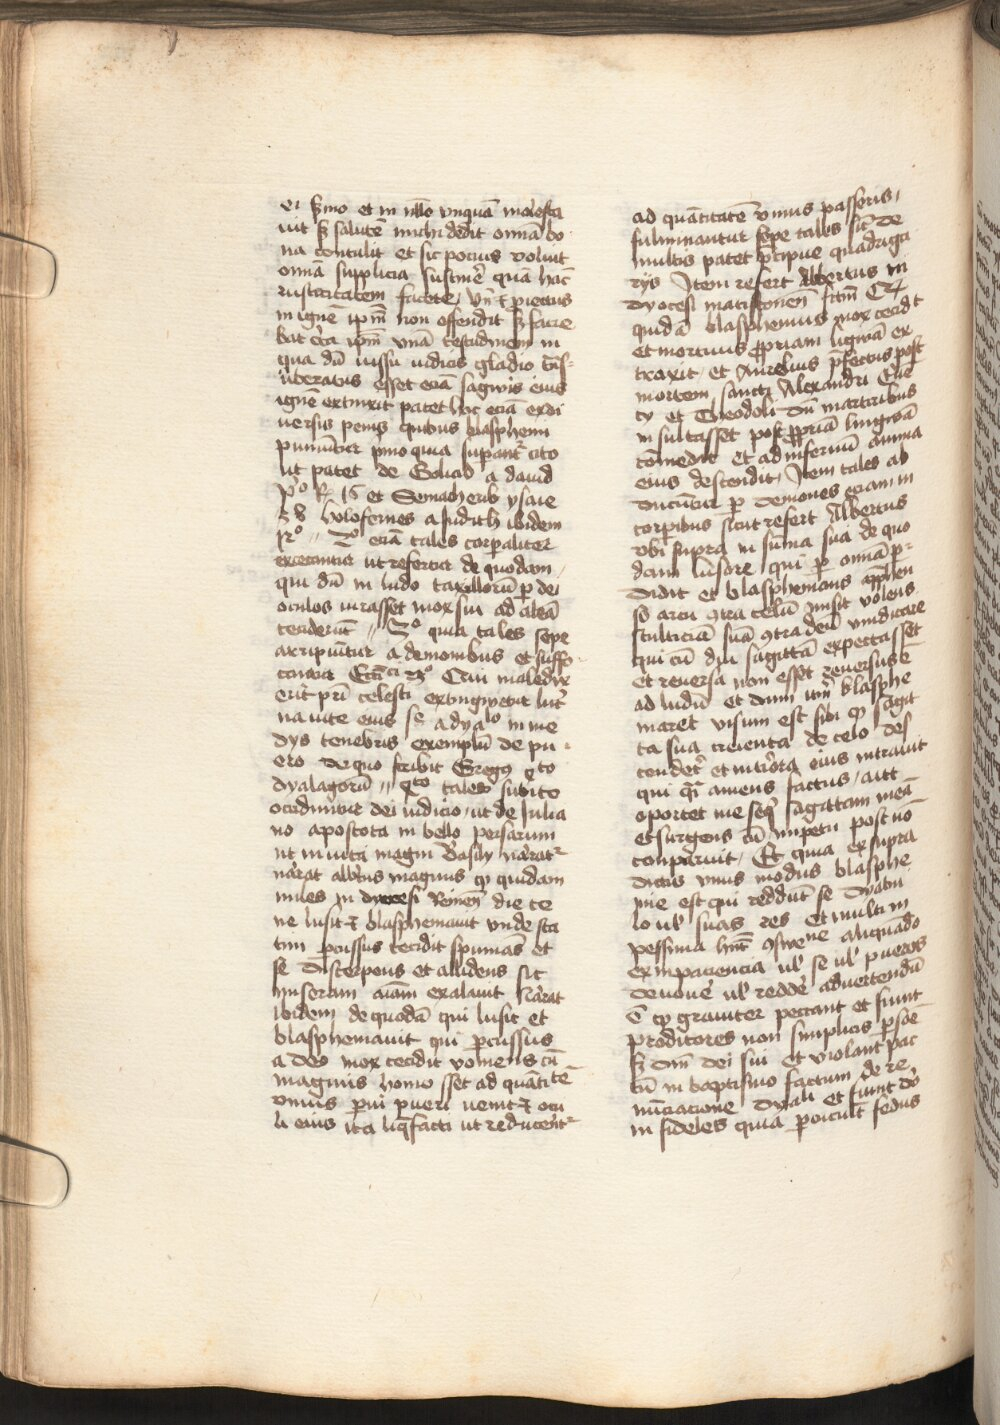 ei ẜmo et in illo vnquā molesta
uit ẜ salutē michi dedit omnia bo
na contulit et sic pocius voluit
omnia supplicia sustinē quā hāc
rusticitatem facere / Vn̄ et piectus
in ignē ipm̄ non offendit ẜ facie
bat ipm̄ vnā testudinem in
qua dū iussu iudicis gladio
esset eciā sagwis eius
ignē extinxit patet hoc eciā ex di
uersis penis quibus blasphemi
puniūtur pino quia supant̄ cito
ut patet de Goliad a dauid
pº R 16 et Senacherib ysaie
holofernes a Judith ibidem
2º eciā tales corpaliter
execantur ut refertur de quodam
qui dū in ludo taxillorū p dei
oculos iurasset mox sui ad aleā
ceciderūt // 3º quia tales sepe
arripiūtur a demonibus et suffo
cantur Cui maledix
erit pri celesti extingwetur lut̄
na uite eius a dyalo in me
dys tenebris exemplū de pu
ero de quo scribit Gregº qrto
dyalagorū // qto tales subito
occidūtur dei iudicio / ut de Julia
no apostota in bello persarum
ut in uita magni Basily narat̄
narat albtus magnus q quidam
miles in dyocesi die ce
ne lusit et blasphemauit vnde sta
tim pcussus cecidit spumās et
se discerpens et alludens sic
miseram aīam exalauit Narat
ibidem de quodā qui lusit et
blasphemauit qui pcussus
a deo mox cecidit vomens cū
magnus homo esset ad quātitē
vnius pui pueri uenit et ocu
li eius ita liqfacti ut reducent̄
ad quātitatē vnius passeris /
fulminantur sepe tales sic de
multis patet pcipue quadriga
rys Item refert Albertus in
dyocesi
quidā blasphemus mox cecidit
et mortuus ppriam ligwā ex
traxit / et Aurelius pfectus post
mortem sancti Alexandri Eue
cy et Theodoli dū martiribus
insultasset post ppriā lingwā
comedit et ad infernū anima
eius descendit / Item tales ab
ducūtur p demones eciam in
corpibus sicut refert Albertus
vbi supra in sūma sua de quo
dam lusore qui p omnia p
didit et blasphemans apphen
so arcu ɔtra celū misit volens
stulticiā suā ɔtra deū vindicare
qui cū diu sagittā expectasset
et reuersa non esset reuersus ē
ad ludū et dum itm̄ blasphe
maret visum est sibi q sagit
ta sua cruenta de celo des
cenderet et interiora eius intrauit
qui qi amens factus / ait
oportet me seq sagittam meā
et surgens cū impetu post nō
comparuit / Et quia ex supra
dictis vnus modus blasphe
mie est qui reddūt se dyabu
lo ul suas res Et multi in
pessima hnt ɔswetudine aliquādo
ex impaciencia ul se ul pueros
deuouē ul reddē aduertendū
ē q grauiter peccant et fiunt
proditores non simplicis psoe
ẜ dni dei sui et violant pac
tū in baptismo factum de re
nūciatione dyali et fiunt dō
infideles quia pdicūt fedus